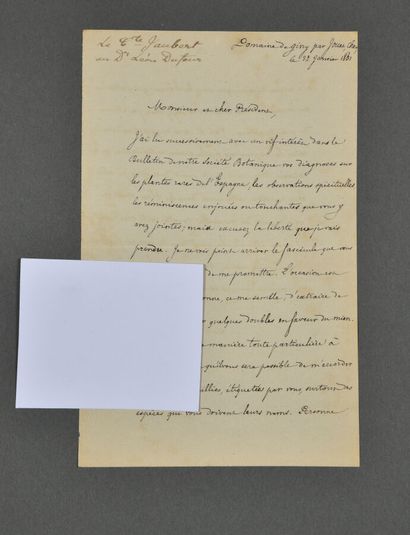 Le Cte Jaubert
au Dr Léon Dufour
Domaine de Givry par Jouet Cher
le 22 Janvier 1861
Monsieur et cher Président,
J'ai lu successivement avec un vif intérêt dans le
Bulletin de notre Société Botanique vos diagnoses sur
les plantes rares de l'Espagne, les observations spirituelles
les réminiscences enjouées ou touchantes que vous y
avez jointes; mais excusez la liberté que je vais
prendre. Je ne vois point arriver le fascicule que vous
de me promettre. L'occasion est
bonne, ce me semble, d'extraire de
quelques doubles en faveur du mien.
manière toute particulière à
qu'il vous sera possible de m'accorder
étiquetées par vous, surtout des
espèces qui vous doivent leurs noms. Personne